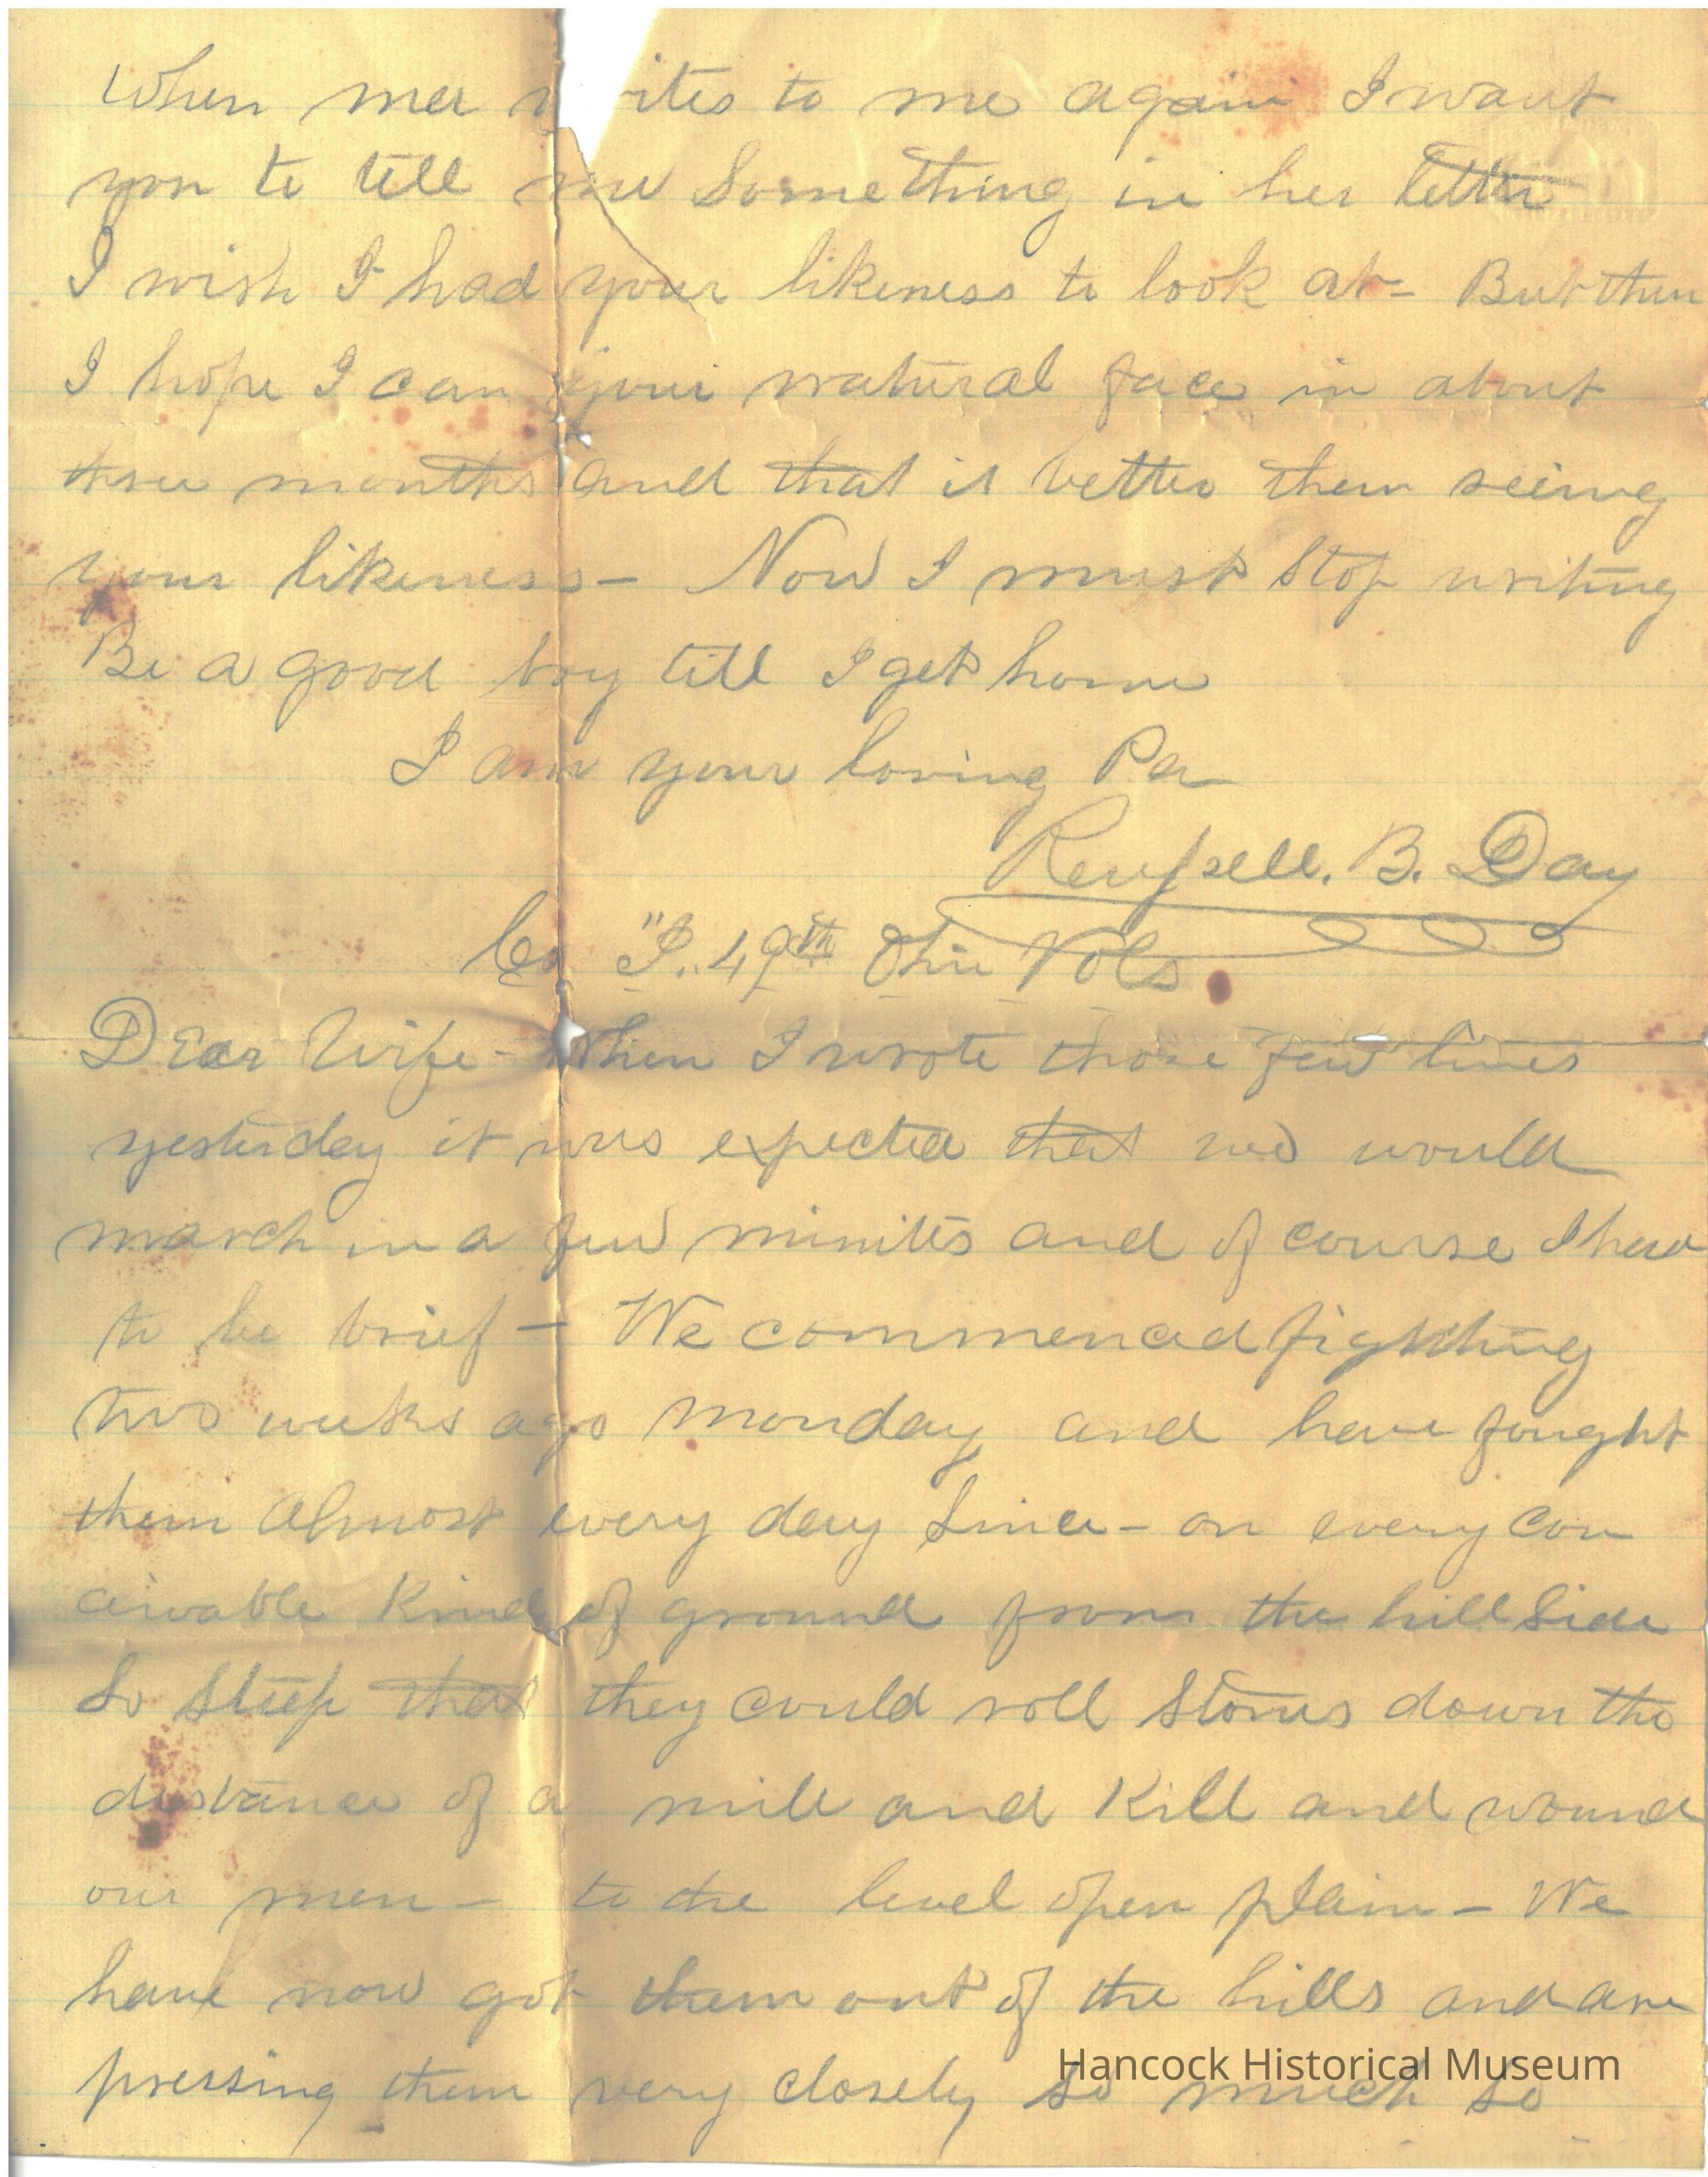 When ma writes to me again I want
you to tell me Something in her letter
I wish I had your likeness to look at - But then
I hope I can your natural face in about
three months and that is better then seeing
your likeness - Now I must Stop writing
Be a good boy till I get home
I am your loving Pa
Russell. B. Day
Co "I" 49th Ohio Vols
Dear Wife - When I wrote those few lines
yesterday it was expected that we would
march in a few minites and of course I had
to be brief - We commenced fighting
two weeks ago Monday and have fought
them Almost every day Since - on every con
ceivable Kind of ground from the hill Side
So Steep that they could roll Stones down the
distance of a mile and Kill and wound
our men - to the level open plain - We
have now got them out of the hills and are
pressing them very closely so much so
Hancock Historical Museum